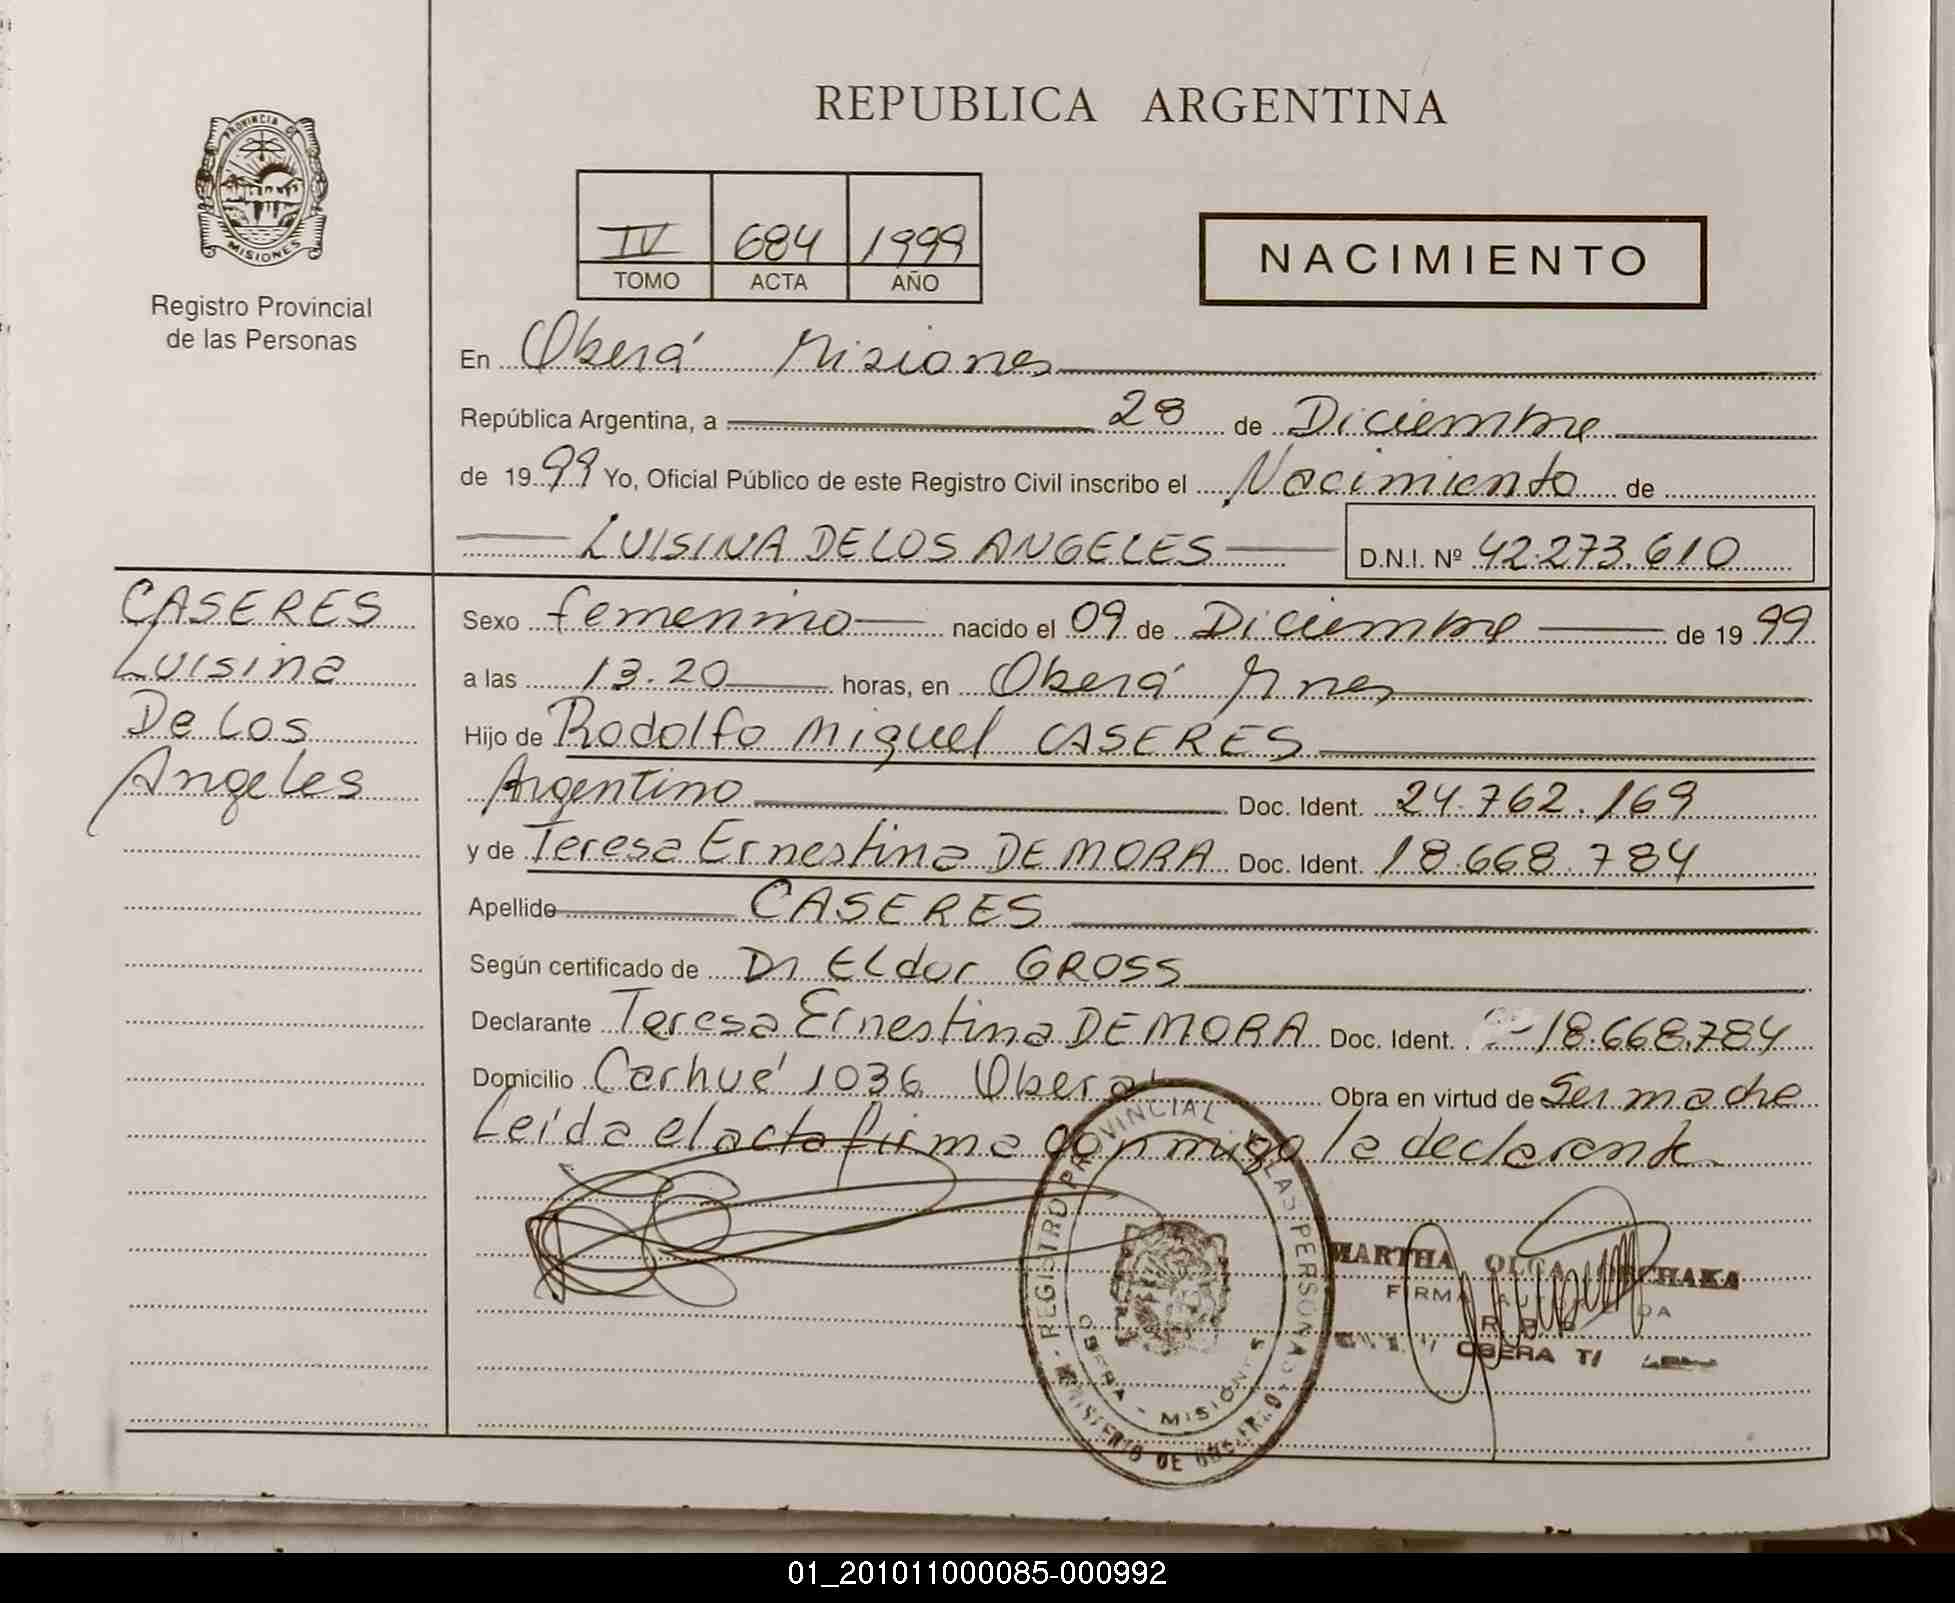 REPUBLICA ARGENTINA
PROVINCIA DE
MISIONES
Registro Provincial
de las Personas
IV 684 1999
TOMO ACTA AÑO
NACIMIENTO
En Oberá Misiones
República Argentina, a 28 de Diciembre
de 1999 Yo, Oficial Público de este Registro Civil inscribo el Nacimiento de
LUISINA DE LOS ANGELES D.N.I. Nº 42.273.610
CASERES
Luisina
De Los
Angeles
Sexo femenino nacido el 09 de Diciembre de 1999
a las 13.20 horas, en Oberá Mnes
Hijo de Rodolfo Miguel CASERES
Argentino Doc. Ident. 24.762.169
y de Teresa Ernestina DE MORA Doc. Ident. 18.668.784
Apellido CASERES
Según certificado de Dr ELdor GROSS
Declarante Teresa Ernestina DE MORA Doc. Ident. 18.668.784
Domicilio Carhué 1036 Oberá Obra en virtud de Ser madre
Leída el acta firma conmigo la declarante
REGISTRO PROVINCIAL DE LAS PERSONAS
MINISTERIO DE GOBIERNO
OBERA - MISIONES
MARTHA OLGA
FIRMA AUTORIZADA
OBERA
01_201011000085-000992